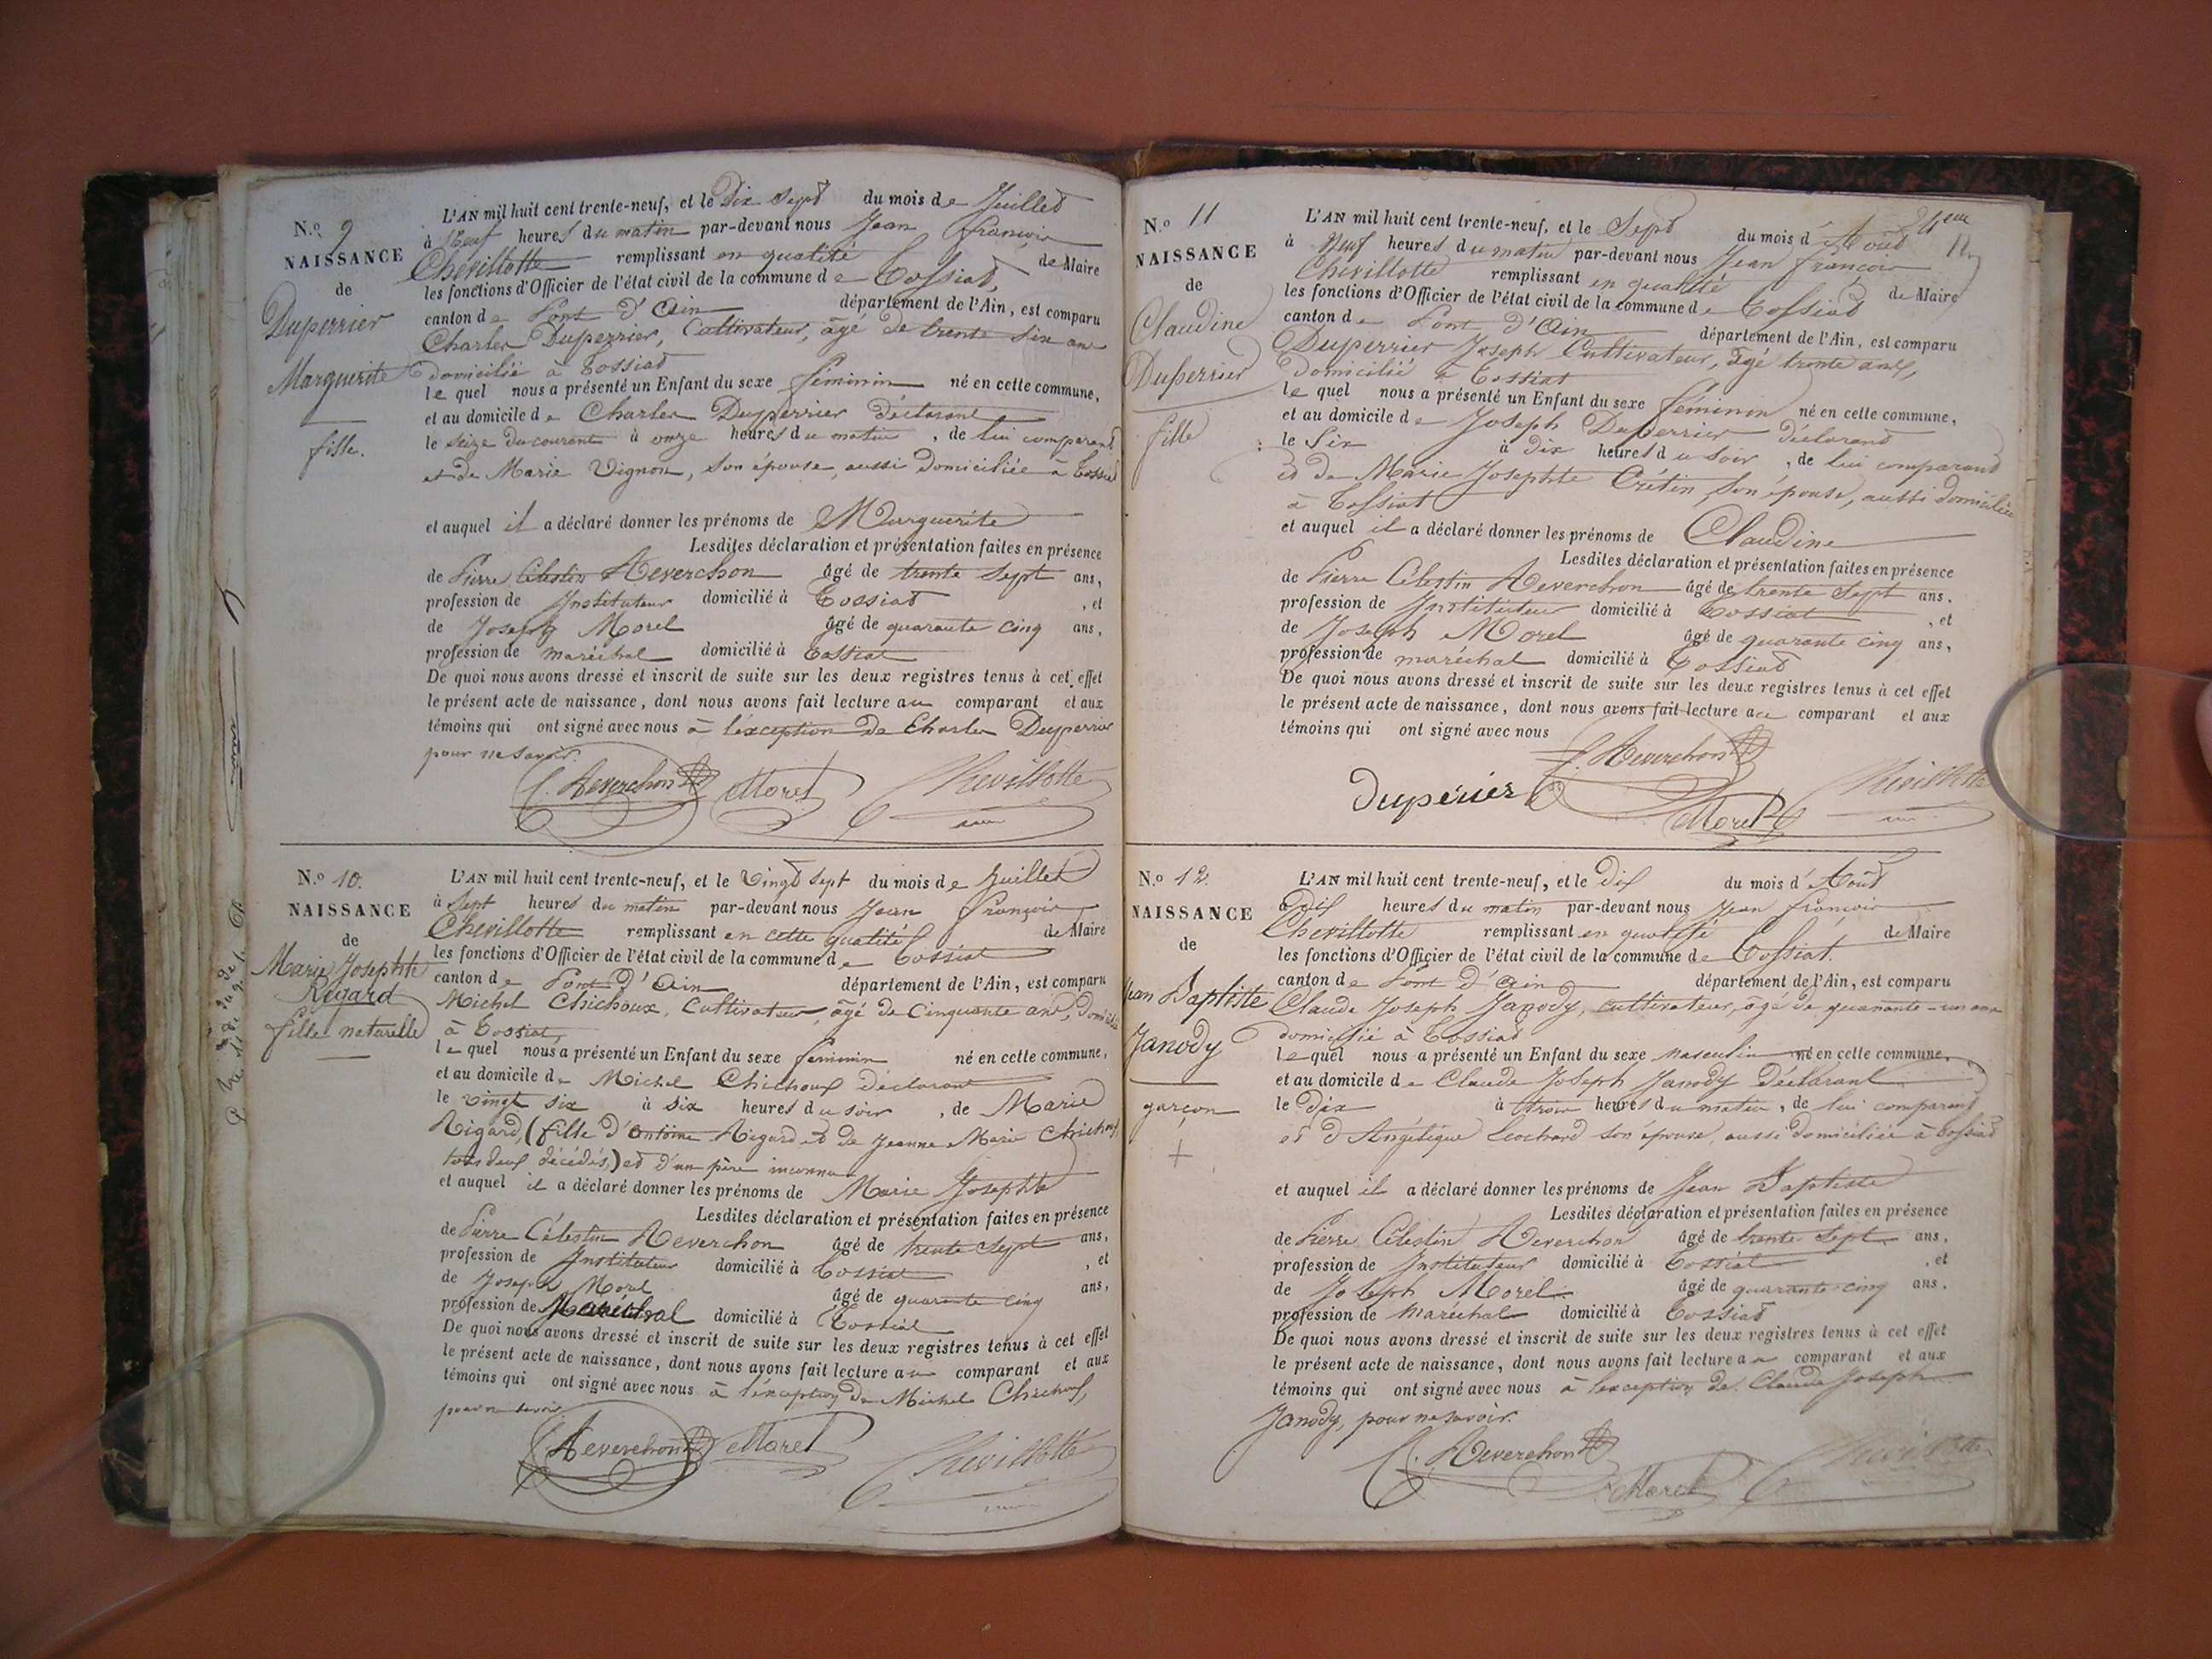 N.º 9
NAISSANCE
de
Duperrier
Marguerite
fille.
L'AN mil huit cent trente-neuf, et le Dix Sept du mois de Juillet
à Neuf heures du matin par-devant nous Jean François
Chevillotte remplissant en qualité de Maire
les fonctions d'Officier de l'état civil de la commune de Tossiat,
canton de Pont d'Ain département de l'Ain, est comparu
Charles Duperrier, Cultivateur, âgé de trente six ans
domicilié à Tossiat
lequel nous a présenté un Enfant du sexe féminin né en cette commune,
et au domicile de Charles Duperrier déclarant
le seize du courant à onze heures du matin, de lui comparant
et de Marie Vignon, son épouse, aussi domiciliée à Tossiat
et auquel il a déclaré donner les prénoms de Marguerite
Lesdites déclaration et présentation faites en présence
de Pierre Célestin Reverchon âgé de trente sept ans,
profession de Instituteur domicilié à Tossiat, et
de Joseph Morel âgé de quarante cinq ans,
profession de maréchal domicilié à Tossiat
De quoi nous avons dressé et inscrit de suite sur les deux registres tenus à cet effet
le présent acte de naissance, dont nous avons fait lecture au comparant et aux
témoins qui ont signé avec nous à l'exception de Charles Duperrier
pour ne savoir.
C. Reverchon Morel Chevillotte
N.º 10.
NAISSANCE
de
Marie Josephte
Rigard
fille naturelle
L'AN mil huit cent trente-neuf, et le Vingt sept du mois de Juillet
à Sept heures du matin par-devant nous Jean François
Chevillotte remplissant en cette qualité de Maire
les fonctions d'Officier de l'état civil de la commune de Tossiat
canton de Pont d'Ain département de l'Ain, est comparu
Michel Chichoux, Cultivateur, âgé de Cinquante ans, domicilié
à Tossiat,
lequel nous a présenté un Enfant du sexe féminin né en cette commune,
et au domicile de Michel Chichoux déclarant
le vingt six à six heures du soir, de Marie
Rigard, (fille d'Antoine Rigard et de Jeanne Marie Chichoux
tous deux décédés,) et d'un père inconnu
et auquel il a déclaré donner les prénoms de Marie Josephte
Lesdites déclaration et présentation faites en présence
de Pierre Célestin Reverchon âgé de trente sept ans,
profession de Instituteur domicilié à Tossiat, et
de Joseph Morel âgé de quarante cinq ans,
profession de Maréchal domicilié à Tossiat
De quoi nous avons dressé et inscrit de suite sur les deux registres tenus à cet effet
le présent acte de naissance, dont nous avons fait lecture au comparant et aux
témoins qui ont signé avec nous à l'exception de Michel Chichoux,
pour ne savoir
C. Reverchon Morel Chevillotte
N.º 11
NAISSANCE
de
Claudine
Duperrier
fille
L'AN mil huit cent trente-neuf, et le Sept du mois d'Août
à Neuf heures du matin par-devant nous Jean François
Chevillotte remplissant en qualité de Maire
les fonctions d'Officier de l'état civil de la commune de Tossiat
canton de Pont d'Ain département de l'Ain, est comparu
Duperrier Joseph Cultivateur, âgé trente ans,
domicilié à Tossiat
lequel nous a présenté un Enfant du sexe féminin né en cette commune,
et au domicile de Joseph Duperrier déclarant
le Six à dix heures du soir, de lui comparant
et de Marie Josephte Crétin, son épouse, aussi domiciliée
à Tossiat
et auquel il a déclaré donner les prénoms de Claudine
Lesdites déclaration et présentation faites en présence
de Pierre Célestin Reverchon âgé de trente sept ans,
profession de Instituteur domicilié à Tossiat, et
de Joseph Morel âgé de quarante cinq ans,
profession de maréchal domicilié à Tossiat
De quoi nous avons dressé et inscrit de suite sur les deux registres tenus à cet effet
le présent acte de naissance, dont nous avons fait lecture au comparant et aux
témoins qui ont signé avec nous
C. Reverchon
duperier Morel Chevillotte
N.º 12.
NAISSANCE
de
Jean Baptiste
Janody
garçon
+
L'AN mil huit cent trente-neuf, et le Dix du mois d'Août
à dix heures du matin par-devant nous Jean François
Chevillotte remplissant en qualité de Maire
les fonctions d'Officier de l'état civil de la commune de Tossiat.
canton de Pont d'Ain département de l'Ain, est comparu
Claude Joseph Janody, cultivateur, âgé de quarante-un ans
domicilié à Tossiat
lequel nous a présenté un Enfant du sexe masculin né en cette commune,
et au domicile de Claude Joseph Janody déclarant
le dix à trois heures du matin, de lui comparant
et d'Angélique Cochard son épouse, aussi domiciliée à Tossiat
et auquel il a déclaré donner les prénoms de Jean Baptiste
Lesdites déclaration et présentation faites en présence
de Pierre Célestin Reverchon âgé de trente sept ans,
profession de Instituteur domicilié à Tossiat, et
de Joseph Morel âgé de quarante-cinq ans,
profession de maréchal domicilié à Tossiat
De quoi nous avons dressé et inscrit de suite sur les deux registres tenus à cet effet
le présent acte de naissance, dont nous avons fait lecture au comparant et aux
témoins qui ont signé avec nous à l'exception de Claude Joseph
Janody, pour ne savoir.
C. Reverchon Morel Chevillotte